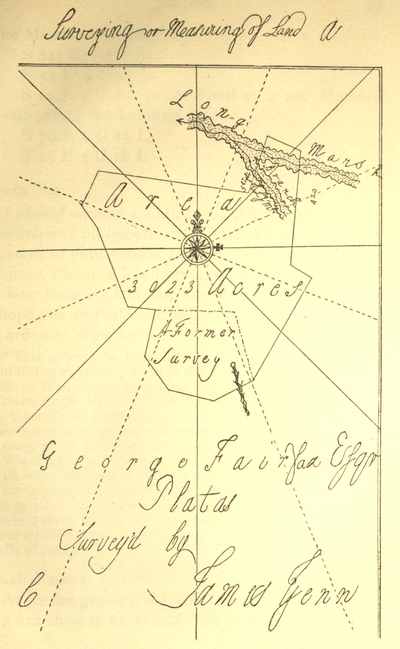 Surveying or Measuring of Land A
Long Marsh
Area
3023 Acres
A Former
Survey
George Fairfax Esqr
Platas
Survey'd by
C James Genn